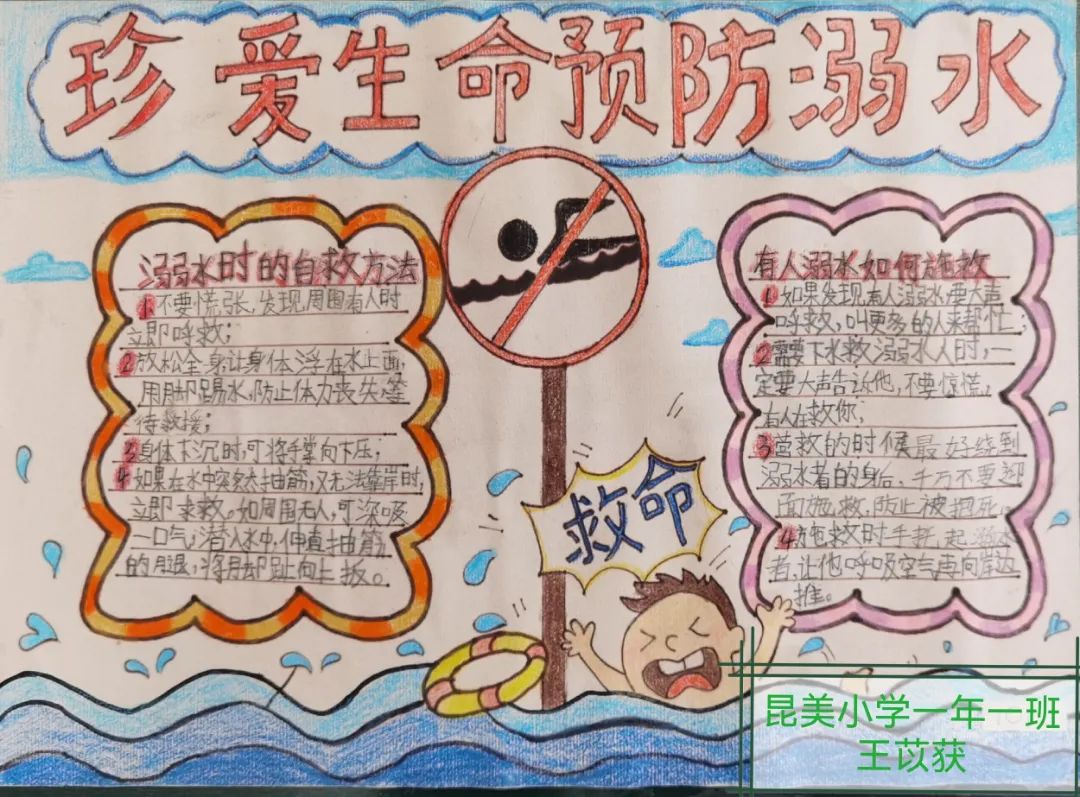 珍爱生命预防溺水
溺水时的自救方法
1不要慌张,发现周围有人时
立即呼救;
2放松全身,让身体浮在水上面,
用脚踢水,防止体力丧失等
待救援;
3身体下沉时,可将手掌向下压;
4如果在水中突然抽筋,又无法靠岸时,
立即求救。如周围无人,可深吸
一口气,潜入水中,伸直抽筋
的腿,将脚趾向上扳。
有人溺水如何施救
1如果发现有人溺水,要大声
呼救,叫更多的人来帮忙;
2需要下水救溺水人时,一
定要大声告诉他,不要惊慌,
有人在救你;
3营救的时候最好绕到
溺水者的身后、千万不要迎
面施救,防止被抱死;
4施救时手托起溺水
者,让他呼吸空气再向岸边
推。
救命
昆美小学一年一班
王苡获